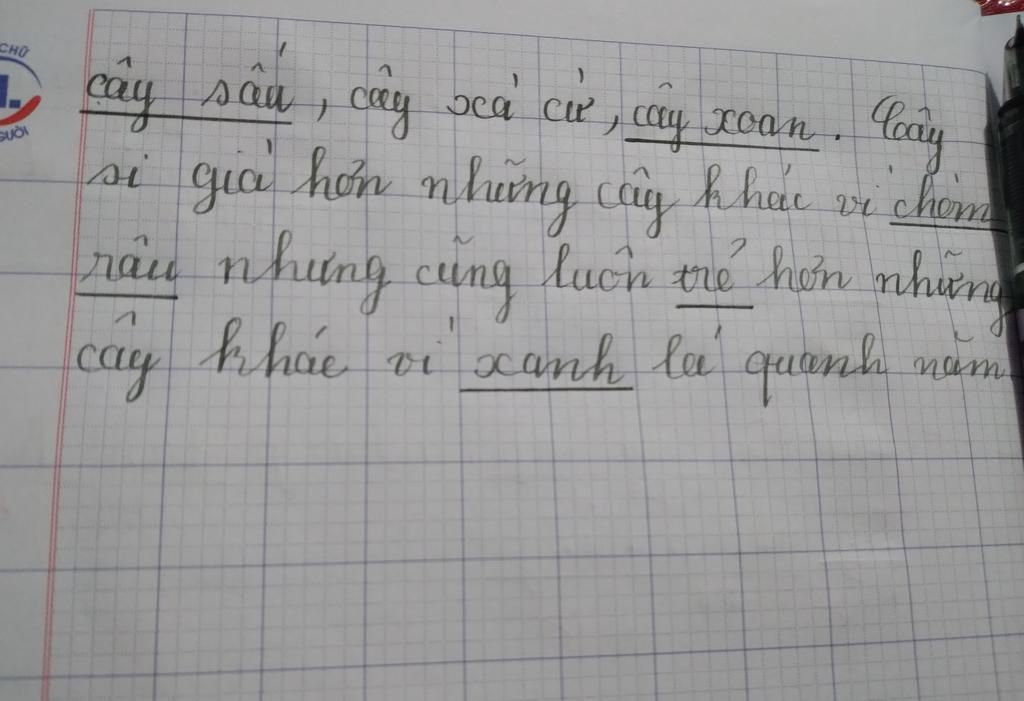 CHỮ
GƯỜI
cây sấu, cây xà cừ, cây xoan. Cây
si già hơn những cây khác vì chòm
râu nhưng cũng luôn trẻ hơn những
cây khác vì xanh lá quanh năm